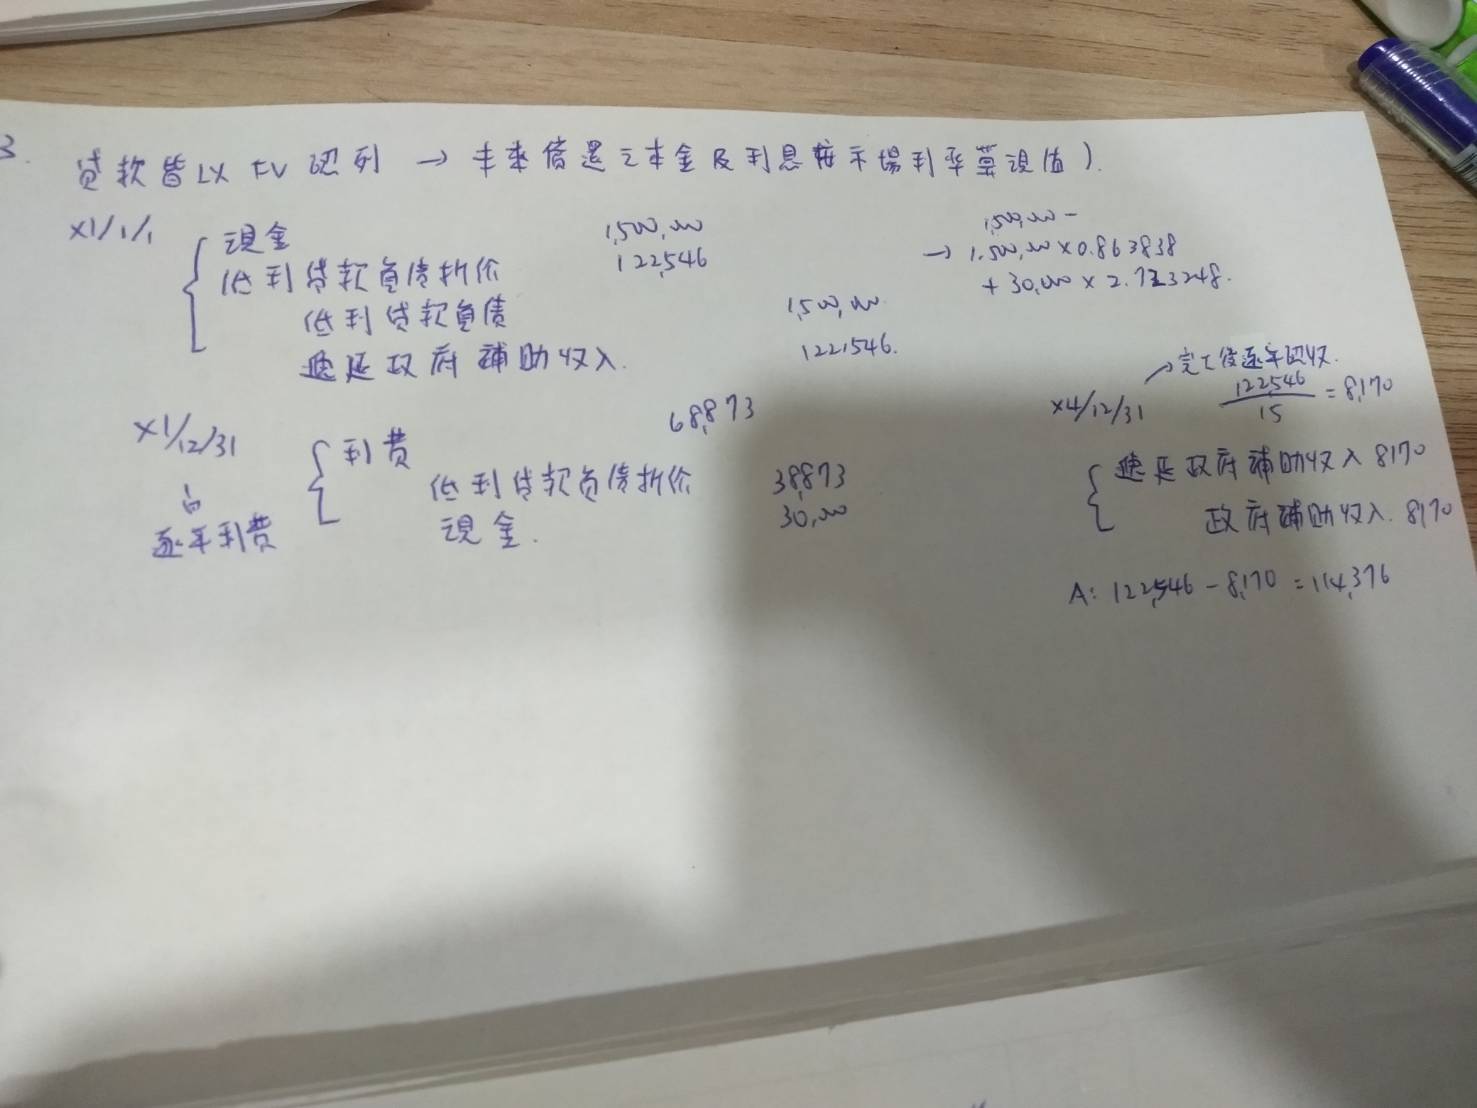 3.
貸款皆以 FV 認列 → 未來償還之本金及利息按市場利率算現值).
X1/1/1
現金 1,500,000
低利貸款負債折价 122,546
低利貸款負債 1,500,000
遞延政府補助收入. 122,546.
1,500,000 -
→ 1,500,000 × 0.863838
+ 30,000 × 2.723248.
X1/12/31
利費 68,873
低利貸款負債折价 38,873
現金. 30,000
逐年利費
→完工後逐年認收.
X4/12/31
122,546 / 15 = 8,170
遞延政府補助收入 8170
政府補助收入. 8170
A: 122,546 - 8,170 = 114,376